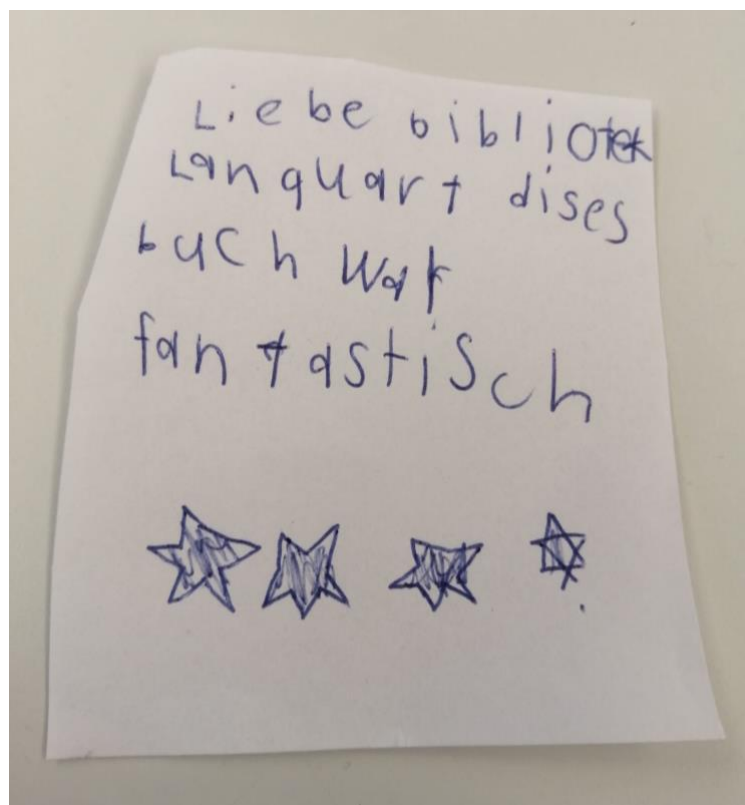 Liebe bibliotek
Lanquart dises
buch war
fantastisch